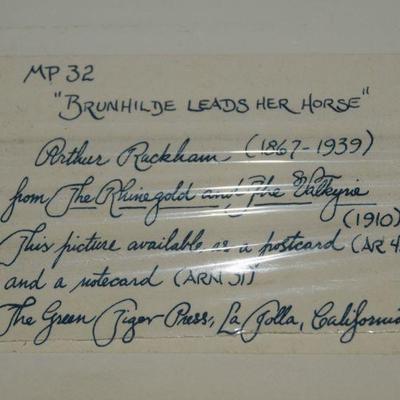 MP 32
"BRUNHILDE LEADS HER HORSE"
Arthur Rackham (1867-1939)
from The Rhinegold and The Valkyrie
(1910)
This picture available as a postcard (AR 4
and a notecard (ARN 31)
The Green Tiger Press, La Jolla, California